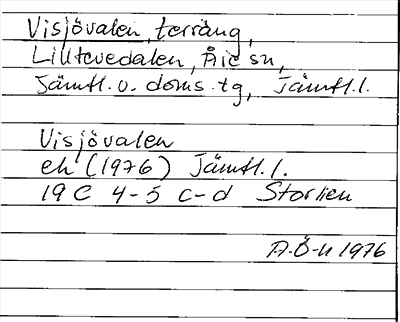 Visjövalen, terräng,
Lilltevedalen, Åre sn,
Jämtl. v. doms. tg, Jämtl. l.
Visjövalen
ek (1976) Jämtl. l.
19 C 4-5 c-d Storlien
A.Ö-n 1976